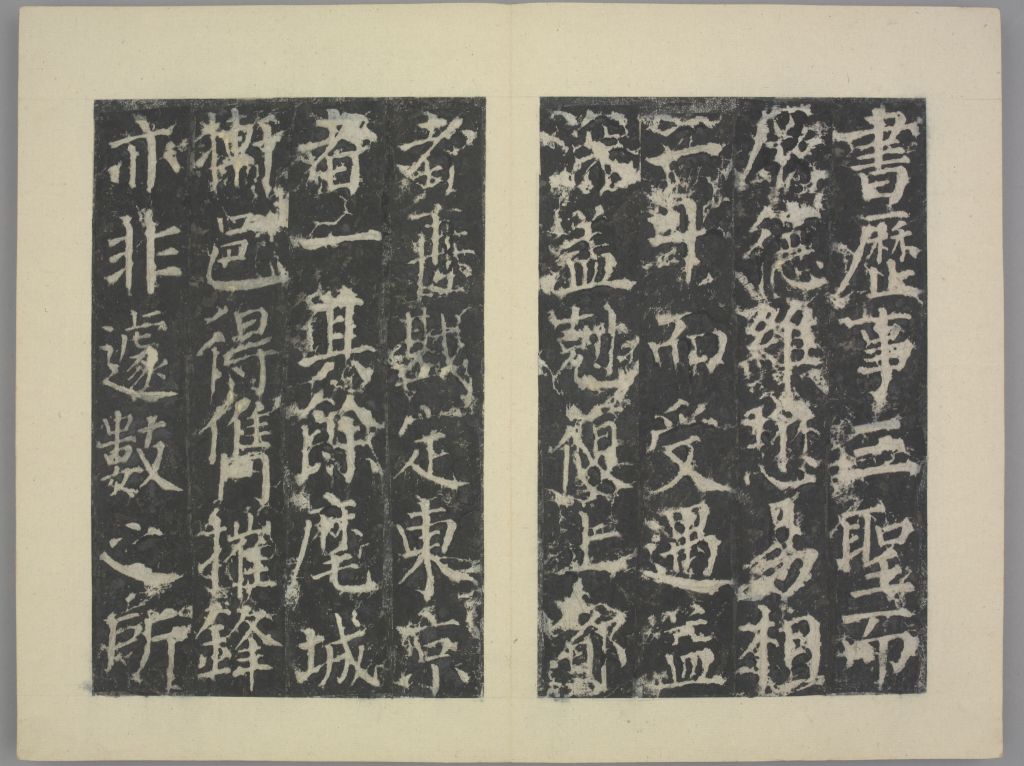 書歷事三聖而
厥德維懋易相
二升而受遇益
深盖剋復上都
者再戡定東京
者一其餘麾城
摲邑得儁摧鋒
亦非遽數之所